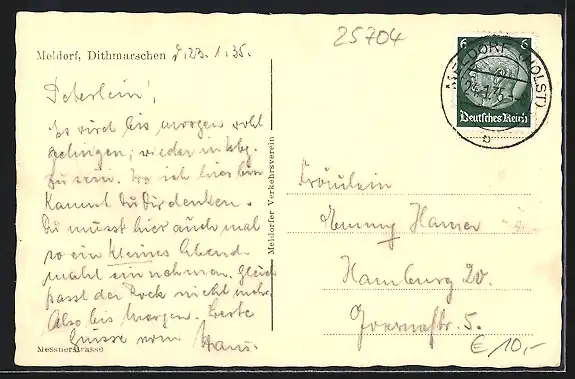 25704
Meldorf, Dithmarschen d. 23.1.35.
Peterlein!
Es wird bis morgen wohl
gelingen, wieder in Hbg.
zu sein. Wo ich hier bin
kannst Du Dir denken.
Du musst hier auch mal
so ein kleines Abend-
mahl einnehmen. Gleich
passt der Rock nicht mehr.
Also bis morgen. Beste
Grüsse vom Hans.
Messnerstrasse
Meldorfer Verkehrsverein
6 6
Deutsches Reich
MELDORF (HOLST)
24.1.35
b
Fräulein
Emmy Hamer
Hamburg 20.
5.
€ 10,-